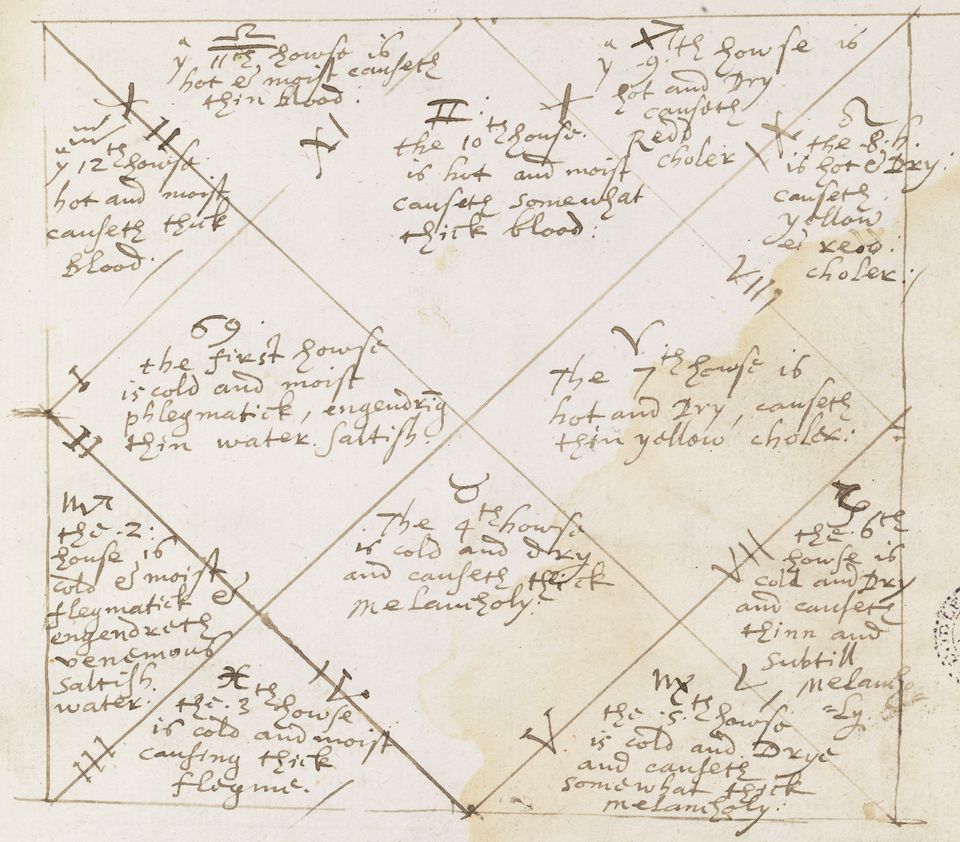 ♎
yᵉ 11th howse is
hot & moist causeth
thin blood:
♐
yᵉ -9-th howse is
hot and Dry
causeth
Redd
choler
♒
yᵉ 12th howse
hot and moist
causeth thick
blood:
♊
the 10th house:
is hot and moist
causeth somewhat
thick blood:
♌
the -8-h.
is hot & Dry:
causeth
yellow
& redd
choler:
♋
the first howse
is cold and moist
phlegmatick, engendrīg
thin water saltish.
♈
The 7th howse is
hot and Dry, causeth
thin yellow choler:
♉
The 4th howse
is cold and dry
and causeth thick
Melancholy:
♏
the .2:
house is
cold & moist
flegmatick &
engendreth
venemous
saltish
water.
♑
the .6th
howse is
cold and Dry
and causeth
thinn and
subtill
Melancho
=ly.
♓
the .3th howse
is cold and moist
causing thick
flegme.
♍
the .5.th howse
is cold and Drye
and causeth
somewhat thick
melancholy:
XII
XI
X
VIII
I
II
VII
III
IV
V